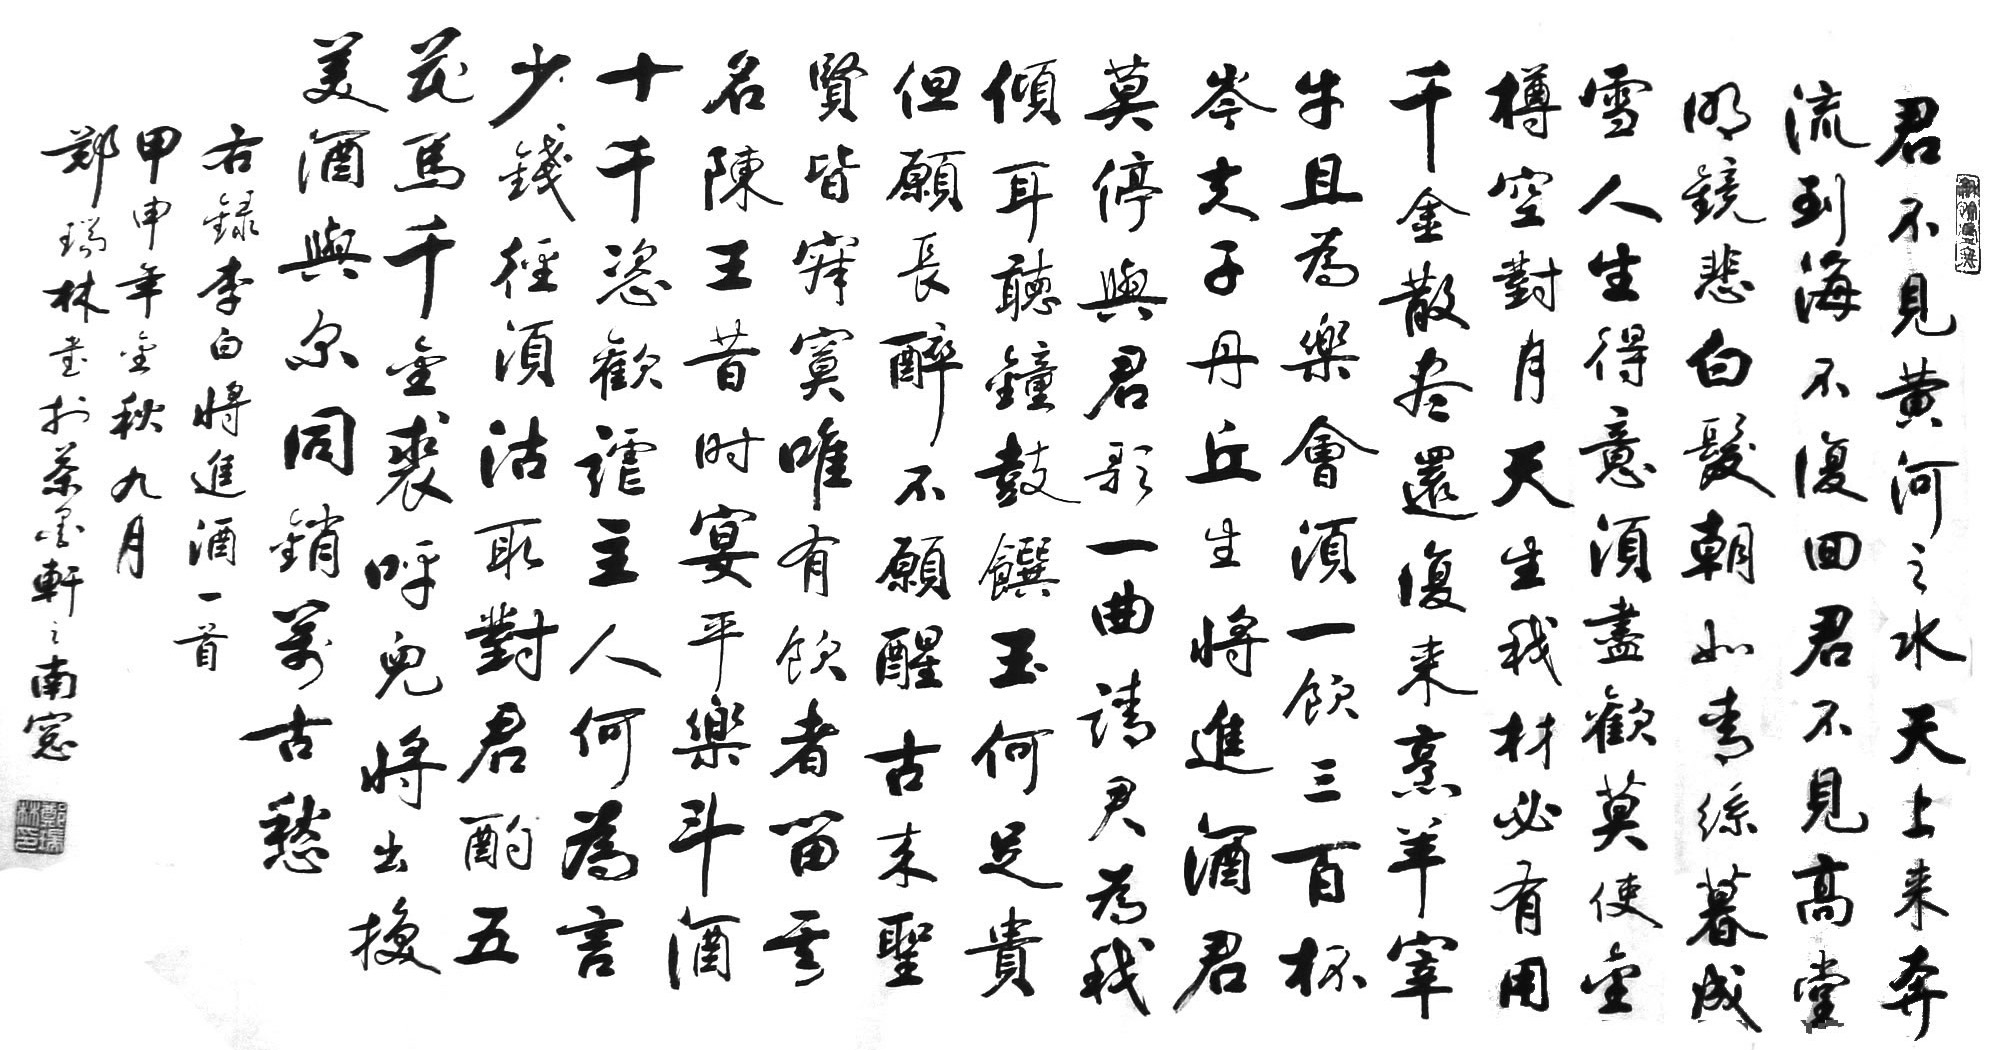 君不見黄河之水天上来奔
流到海不復回君不見高堂
明鏡悲白髮朝如青絲暮成
雪人生得意須盡歡莫使金
樽空對月天生我材必有用
千金散尽還復来烹羊宰
牛且為樂會須一飲三百杯
岑夫子丹丘生將進酒君
莫停與君歌一曲請君為我
傾耳聽鐘鼓饌玉何足貴
但願長醉不願醒古来聖
賢皆寂寞唯有飲者留其
名陳王昔时宴平樂斗酒
十千恣歡謔主人何為言
少錢徑須沽取對君酌五
花馬千金裘呼兒將出換
美酒與尔同銷萬古愁
右録李白將進酒一首
甲申年金秋九月
鄭瑞林書於茶墨軒之南窓
鄭瑞林印